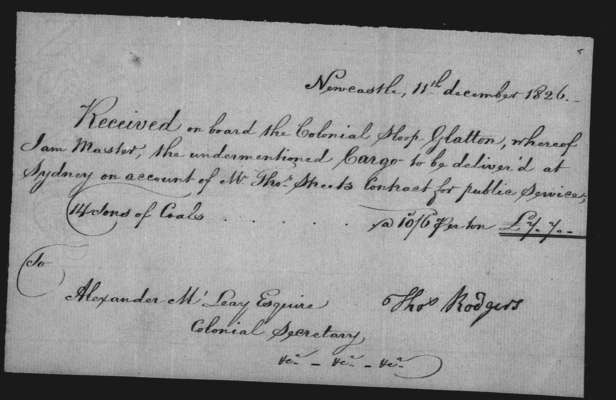 Newcastle, 11th december 1826.-
Received on board the Colonial Sloop Glatton, whereof
I am Master, the undermentioned Cargo to be deliver'd at
Sydney on account of Mr Thos Streets Contract for public Service,
14 Tons of Coals . . . . . . . @ 10/6 Per ton £7.7.-
To
Alexander Mc Leay Esquire
Thos Rodgers
Colonial Secretary
&c. - &c. - &c.